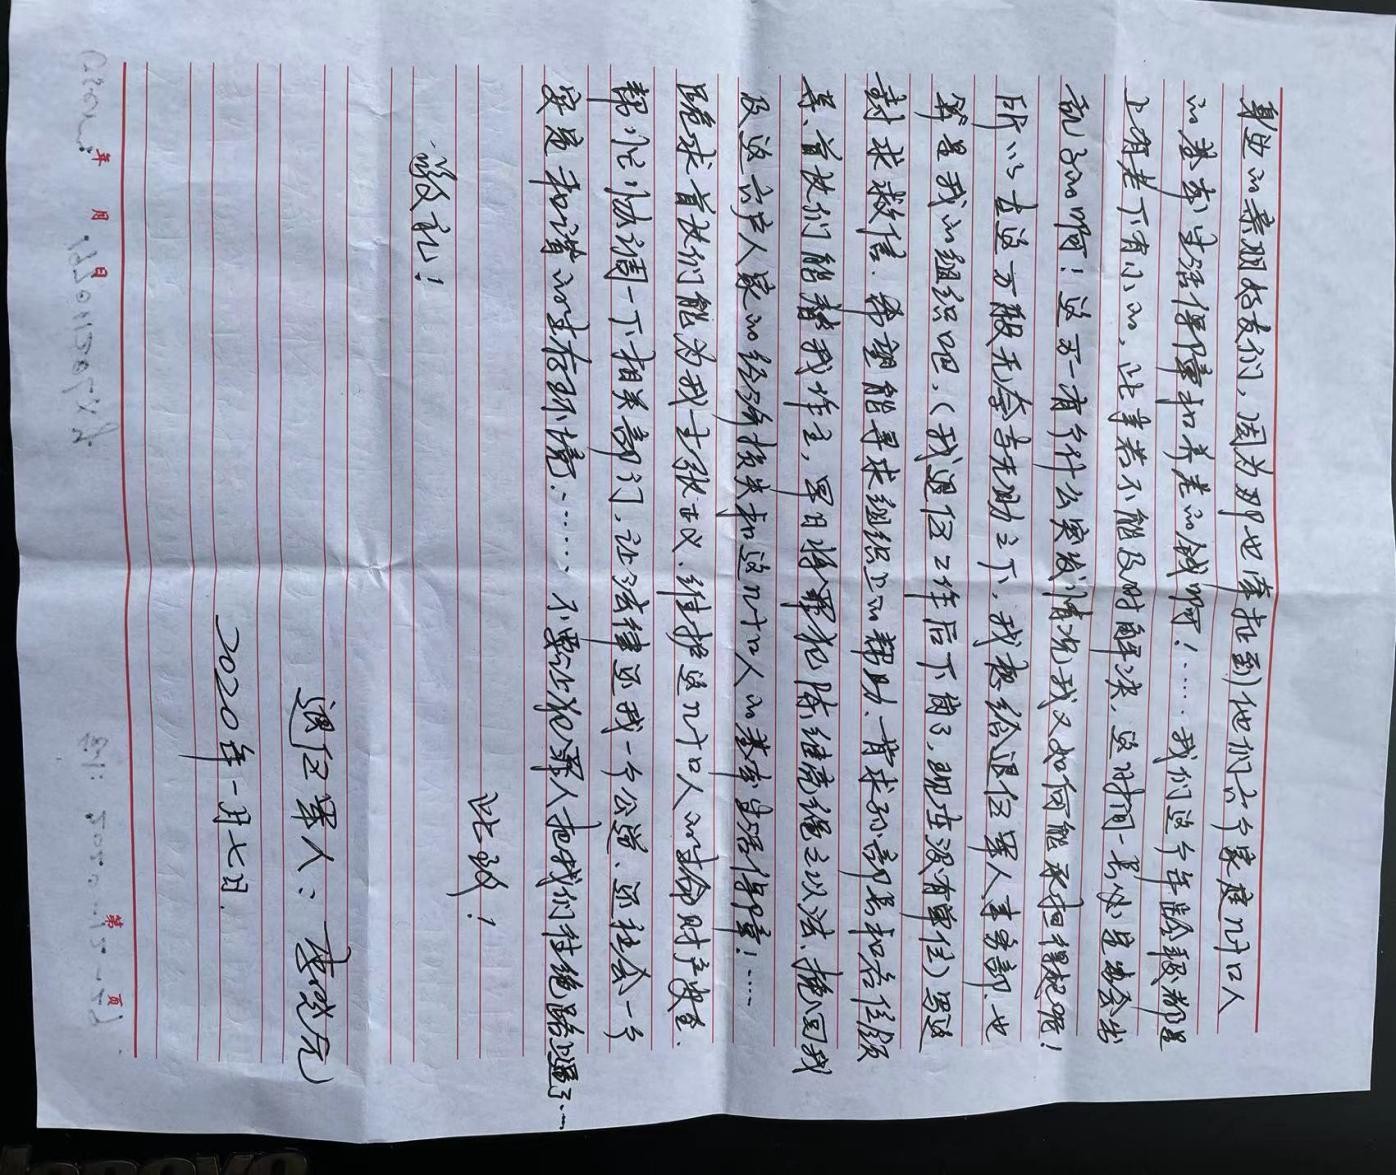 身边的亲朋好友们,因为那也牵扯到他们六个家庭几十口人
的基本生活保障和养老的钱啊!……我们这个年龄段都是
上有老下有小的,此事若不能及时解决,这时间一长必定要会出
乱子的啊!这万一有个什么突发情况我又如何能承担得起呢!
所以在这万般无奈与无助之下,我想给退伍军人事务部.也
算是我的组织吧,(我退伍工作后下岗了,现在没有单位)写这
封求救信.希望能寻求组织上的帮助.肯求孙部长和各位领
导、首长们能替我作主,早日将罪犯陈继亮绳之以法、挽回我
及这六户人家的经济损失和这几十口人的基本生活保障!……
跪求首长们能为我主张正义.维护这几十口人的生命财产安全.
帮忙协调一下相关部门,让法律还我一个公道、还社会一个
安定和谐的生存环境……不要让犯罪人把我们往绝路上逼了…
此致!
敬礼!
退伍军人:
2020年一月七日.
年 月 日
第 页